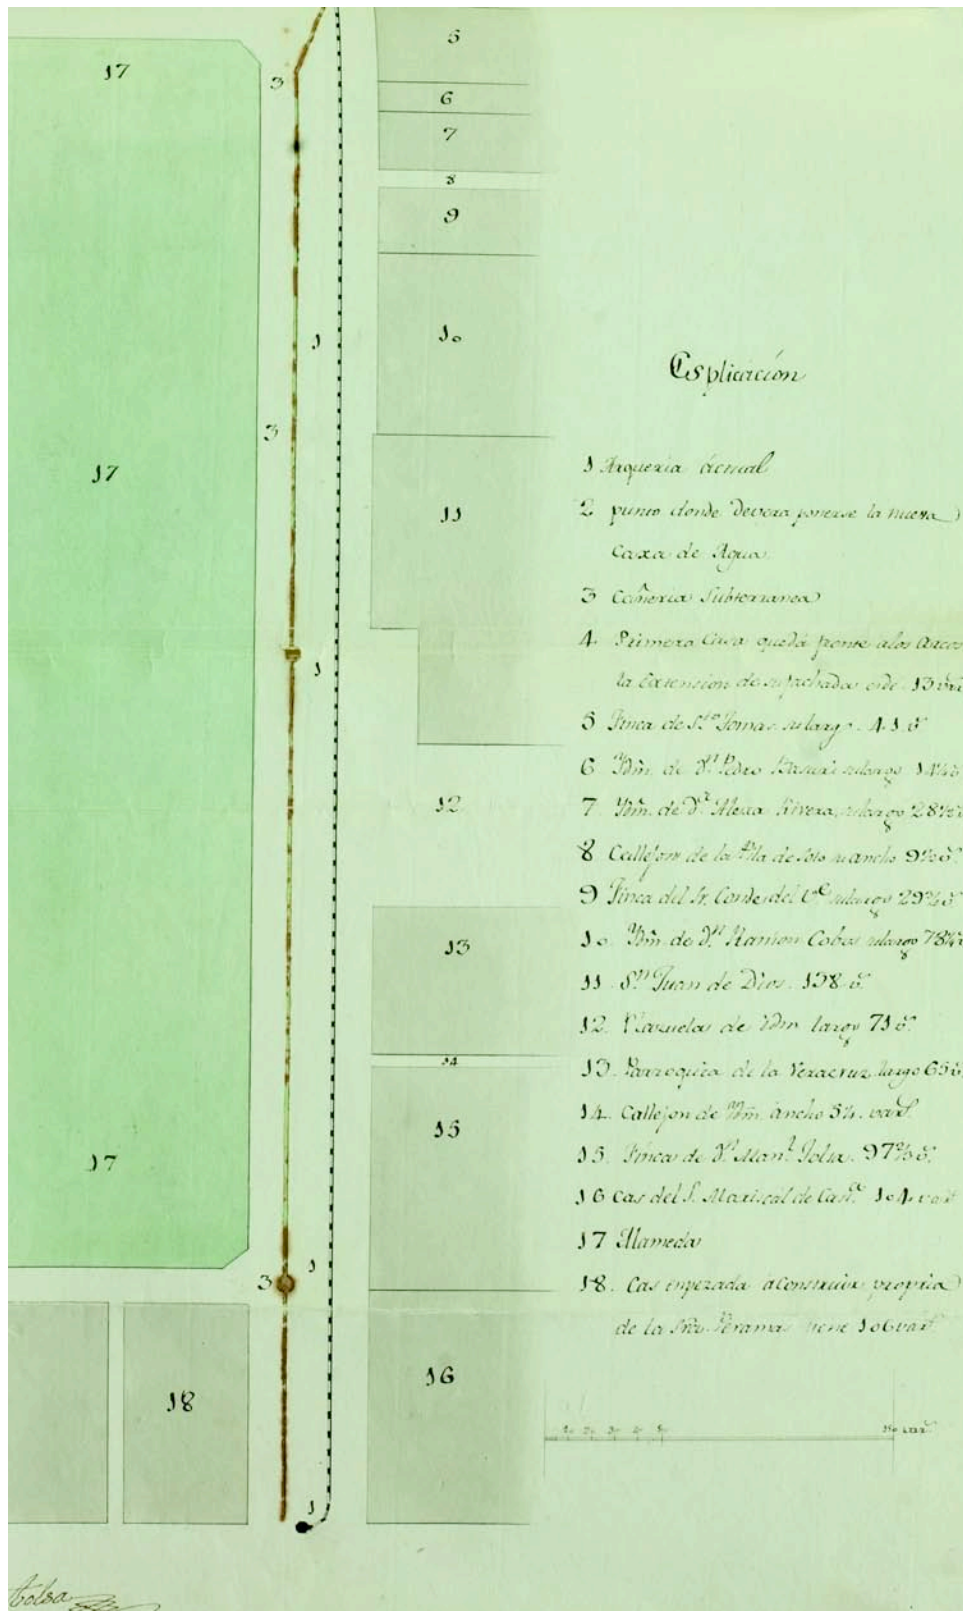 5
17
3
6
7
8
9
1
10
3
Esplicación
17
11
1 Arqueria actual
2 punto donde devera ponerse la nueva
Caxa de Agua
3 Cañeria Subterranea
4 Primera Casa quedá frente alos Arcos
la Extension de su fachada es de 13 var
1
5 Finca de Sto Tomas su largo. 41 v.
6 Ydm. de Dn Pedro su largo 14
12
7. Ydm. de Da Rivera, su largo 28½
8 Callejon de la de Soto su ancho 9
9 Finca del Sr. Conde del su largo 29
13
10. Ydm de Dn Ramon Cobos su largo 78
11. Sn Juan de Dios. 138 v.
12. Plazuela de Ydm largo 71 v.
14
13. Parroquia de la Veracruz largo 65 v.
14. Callejon de Ydm. ancho 5¼. vars.
15
17
15. Finca de Dn Manl Tolsa. 97 v.
16 Cas del S. Mariscal de Casta 104. vars
17 Alameda
1
3
18. Cas enpezada aconstruir propria
de la Sra. Terama tiene 106 vars
16
18
10 20 30 40 50 150 vars
1
Tolsa